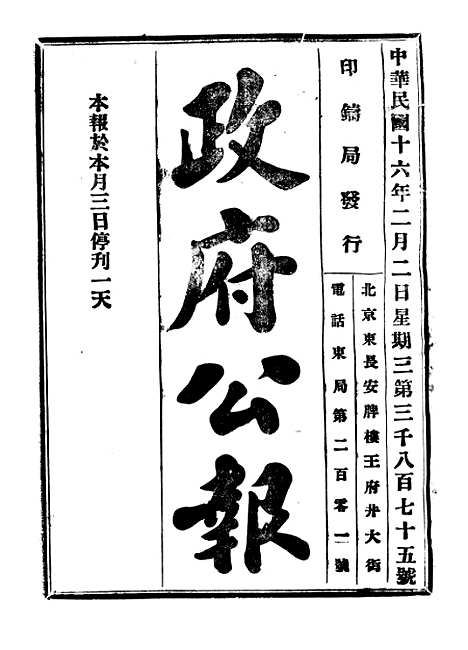 中華民國十六年二月二日星期三第三千八百七十五號
印鑄局發行
北京東長安牌樓王府井大街
電話東局第二百零一號
政府公報
本報於本月三日停刊一天